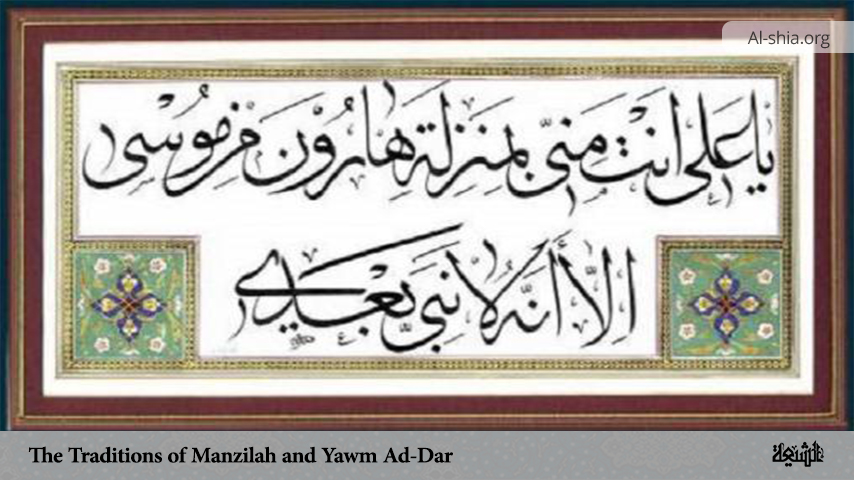 Al-shia.org
يا علي انت مني بمنزلة هارون من موسى
الا أنه لا نبي بعدي
The Traditions of Manzilah and Yawm Ad-Dar
الشیعة